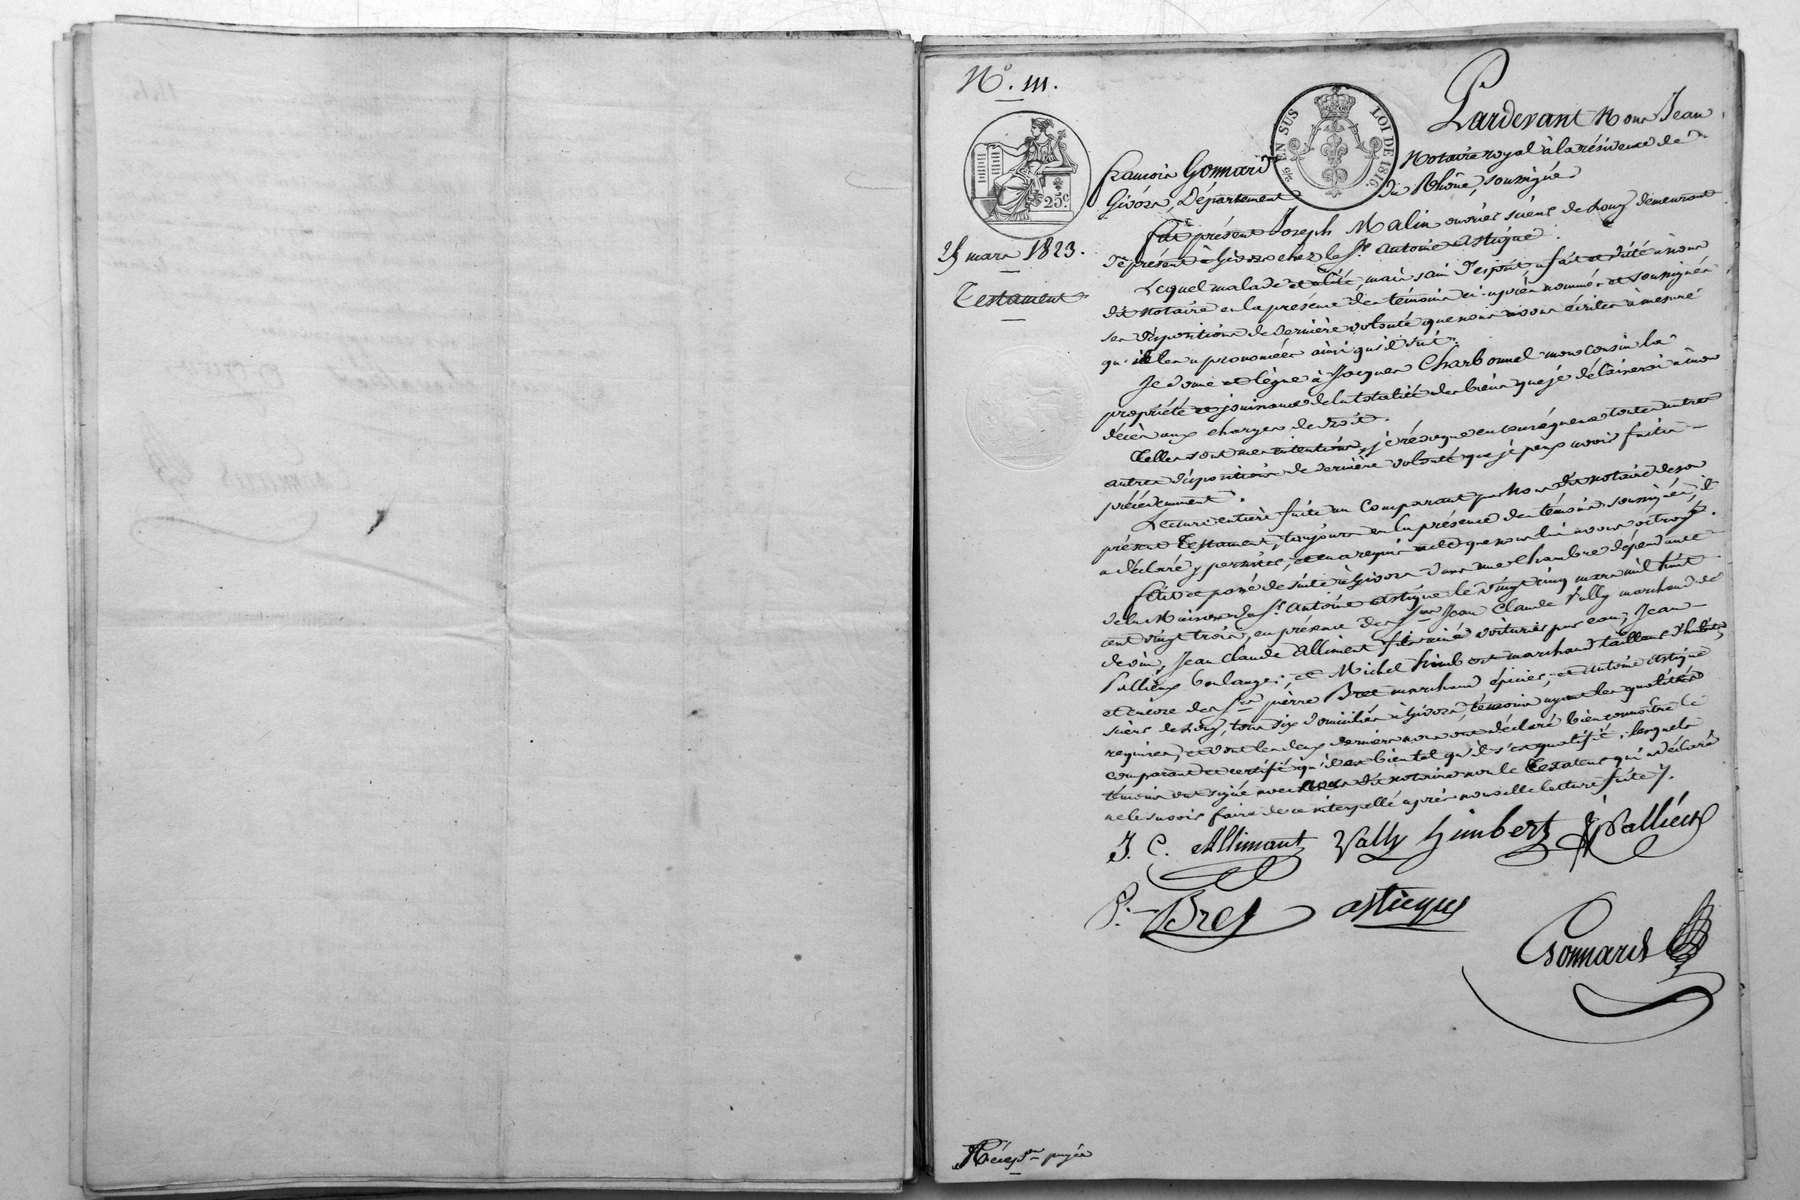 N.º 111.
EN SUS
LOI DE 1816
25 c
25 mars 1823.
Testament
Pardevant Nous Jean
francois Gonnard Notaire royal à la résidence de
Givors, Département du Rhône, soussigné
fut présent Joseph Malin ouvrier scieur de long demeurant
de présent à Givors chez le Sr. Antoine Astique.
Lequel malade et alité, mais sain d'esprit, a fait et dicté à nous
dit Notaire en la présence des témoins ci-après nommés et soussignés
ses dispositions de dernière volonté que nous avons écrites à mesure
qu'il les a prononcées ainsi qu'il suit.
Je donne et lègue à Jacques Charbonnel mon cousin la
propriété et jouissance de la totalité des biens que je délaisserai à mon
décès aux charges de droit.
Telles sont mes intentions, je révoque en conséquence toutes autres
autres dispositions de dernière volonté que je peux avoir faites
précédemment.
Lecture entière faite au Comparant par Nous dit notaire de son
présent Testament, toujours en la présence des témoins soussignés, il
a déclaré y persister, et en a requis acte que nous lui avons octroyé.
fait et passé de suite à Givors dans une chambre dépendante
de la Maison du Sr. Antoine Astique le vingt cinq mars mil huit
cent vingt trois, en présence des Srs Jean Claude Vally marchand de
de vin, Jean Claude Alliment fils ainé voiturier par eau, Jean
Pallieux boulanger, et Michel himbert marchand tailleur d'habits,
et encore des Srs pierre Bret marchand épicier, et Antoine Astique
scieur de long, tous six domiciliés à Givors, témoins ayant les qualités
requises, et dont les deux derniers nous ont déclaré bien connoître le
comparant et certifié qu'il est bien tel qu'il s'est qualifié, lesquels
témoins ont signé avec nous dit notaire non le Testateur qui a déclaré
ne le savoir faire de ce interpellé après nouvelle lecture faite
J. C. Allimant Vally himbert Pallieux
P. Bret astique
Gonnard